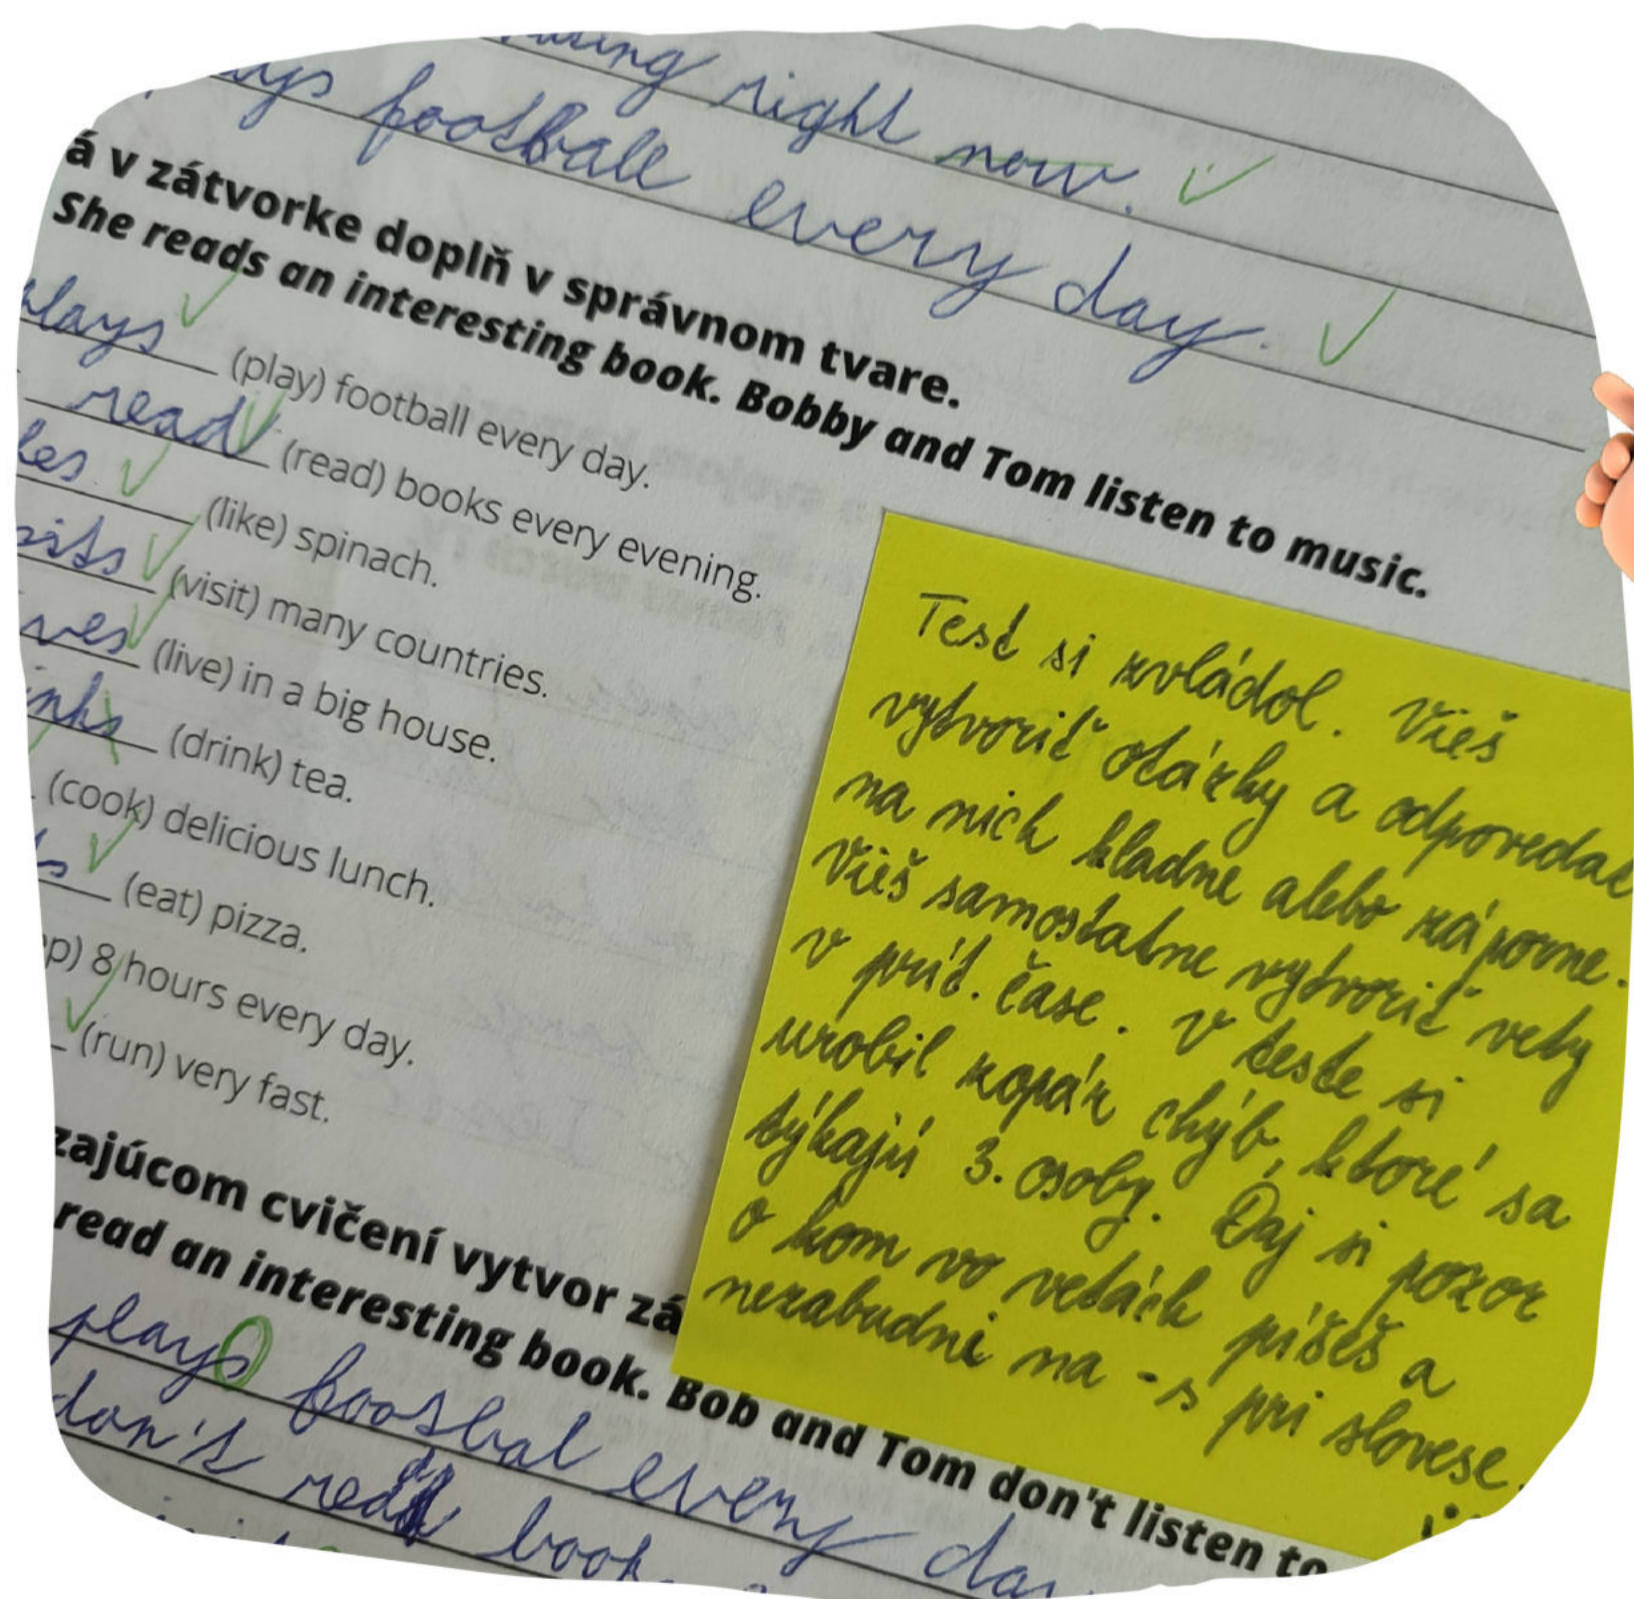 right now.
football every day.
á v zátvorke doplň v správnom tvare.
She reads an interesting book. Bobby and Tom listen to music.
(play) football every day.
read (read) books every evening.
(like) spinach.
(visit) many countries.
(live) in a big house.
(drink) tea.
(cook) delicious lunch.
(eat) pizza.
8 hours every day.
(run) very fast.
zajúcom cvičení vytvor zá
read an interesting book. Bob and Tom don't listen to
plays footbal every
don't read book
Test si zvládol. Vieš
vytvoriť otázky a odpovedať
na nich kladne alebo záporne.
Vieš samostatne vytvoriť vety
v prít. čase. V teste si
urobil zopár chýb, ktoré sa
týkajú 3. osoby. Daj si pozor
o kom vo vetách píšeš a
nezabudni na -s pri slovese.